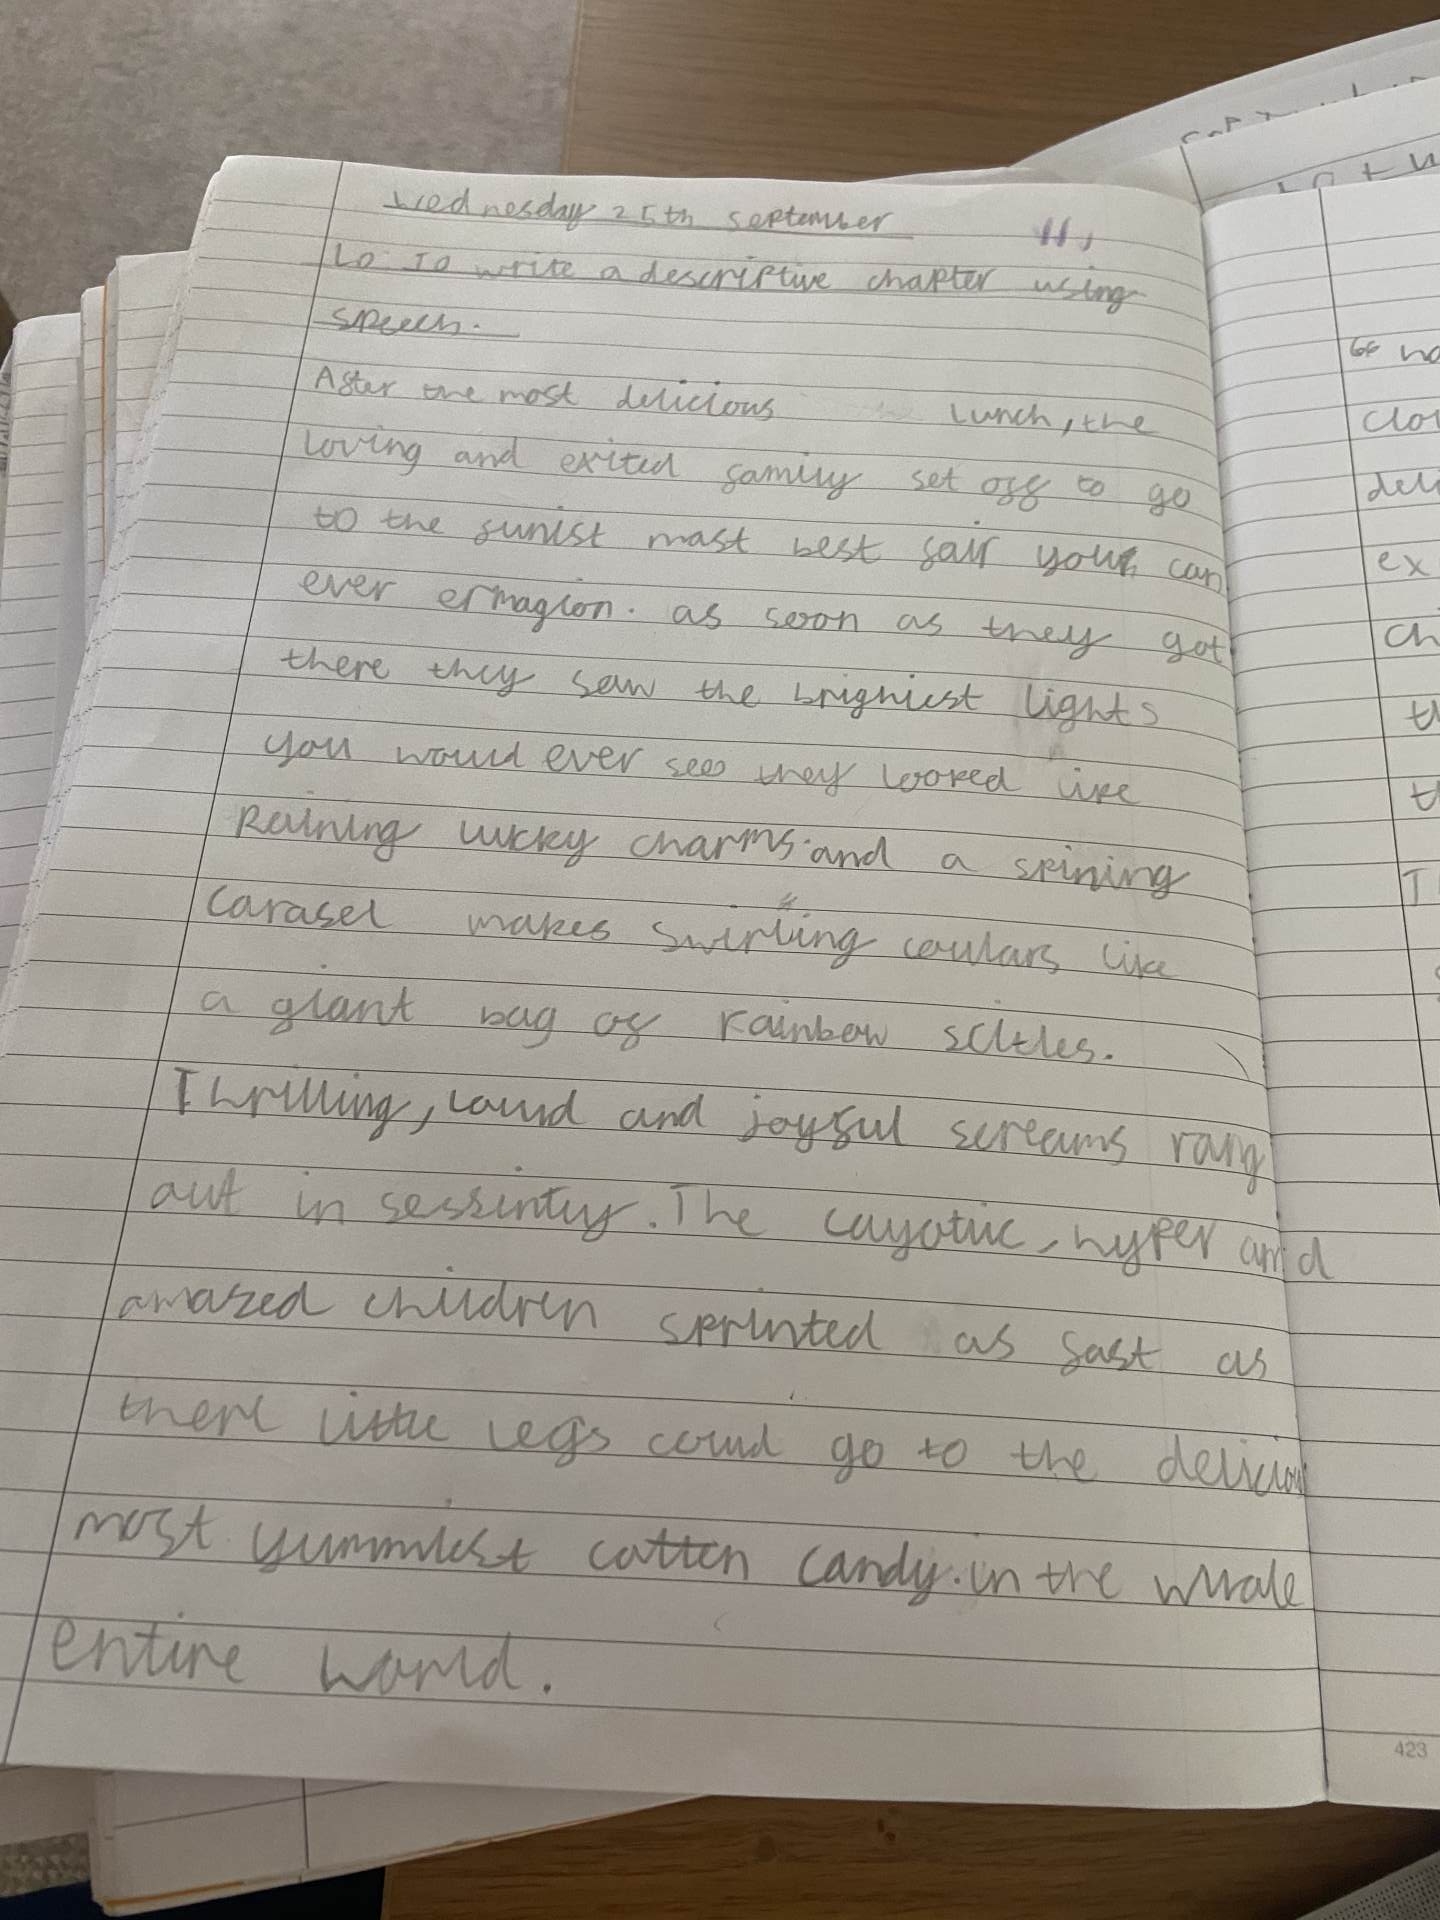 Wednesday 25th september
Lo: To write a descriptive chapter using
speech.
After the most delicious lunch, the
loving and exited family set off to go
to the funist most best fair you can
ever ermagion. as soon as they got
there they saw the brighiest lights
you would ever see they looked like
Raining lucky charms. and a spining
carasel makes swirling coulars like
a giant bag of rainbow scitles.
Thrilling, loud and joyful screams rang
out in sessinty. The cayotic, hyper and
amazed children sprinted as fast as
there little legs could go to the delicious
most yummiest cotten candy. in the whole
entire world.
423